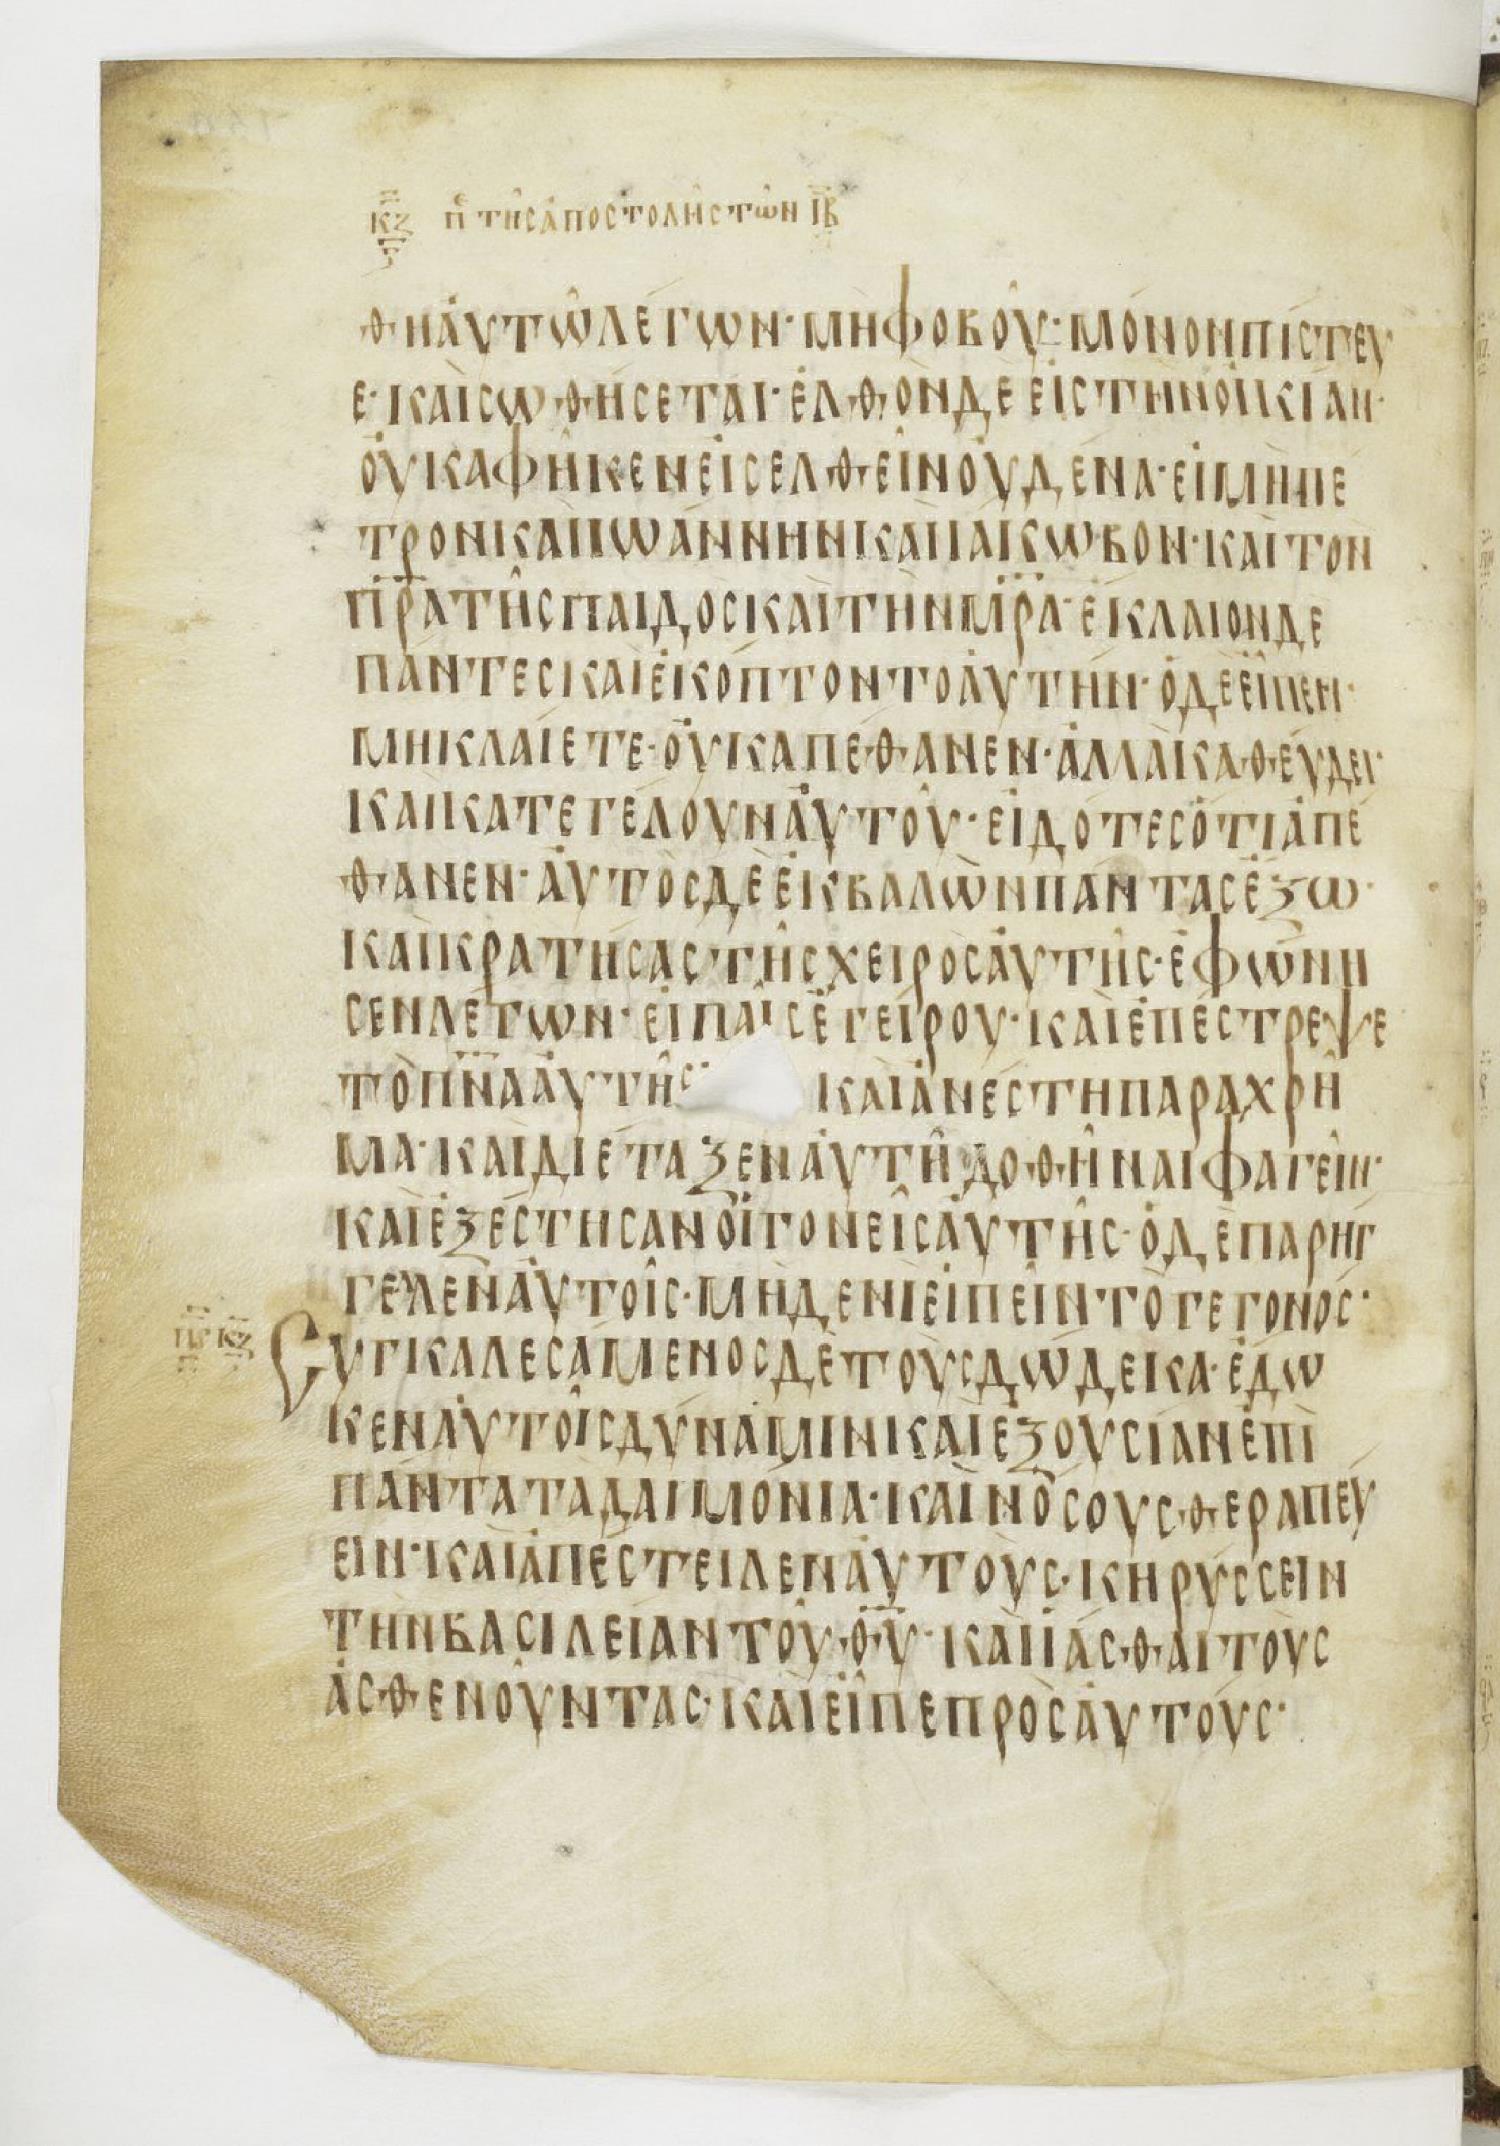 ΚΖ Π ΤΗ͂ϹἈΠΟϹΤΟΛΗ͂ϹΤΩ͂Ν ΙΒ
ΘΗἈΥΤΩ͂ΛΕΓΩΝ· ΜΗΦΟΒΟΥ͂· ΜΟΝΟΝΠΙϹΤΕΥ
Ε· ΚΑῚϹΩΘΗϹΕΤΑΙ· ἘΛΘΟΝΔΕ ΕἸϹΤΗΝΟἸΚΙΑΝ·
ΟΥΚΑΦΗ͂ΚΕΝΕἸϹΕΛΘΕΙ͂ΝΟΥΔΕΝΑ· ΕἸΜΗΠΕ
ΤΡΟΝΚΑΙΙΩΑΝΝΗΝΚΑΙΙΑΚΩΒΟΝ· ΚΑΙΤΟΝ
Π̅Ρ̅Α̅ΤΗ͂ϹΠΑΙΔΟϹΚΑΙΤΗΝΜ̅Ρ̅Α̅· ἘΚΛΑΙΟΝΔΕ
ΠΑΝΤΕϹΚΑΙἘΚΟΠΤΟΝΤΟἈΥΤΗΝ· ὉΔΕΕἸΠΕΝ·
ΜΗΚΛΑΙΕΤΕ· ΟΥΚΑΠΕΘΑΝΕΝ· ἈΛΛΑΚΑΘΕΥΔΕΙ·
ΚΑΙΚΑΤΕΓΕΛΟΥΝἈΥΤΟΥ͂· ΕἸΔΟΤΕϹὉΤΙἈΠΕ
ΘΑΝΕΝ· ἈΥΤΟϹΔΕἘΚΒΑΛΩΝΠΑΝΤΑϹἘΞΩ·
ΚΑΙΚΡΑΤΗϹΑϹΤΗ͂ϹΧΕΙΡΟϹἈΥΤΗ͂Ϲ· ἘΦΩΝΗ
ϹΕΝΛΕΓΩΝ· ΕΙΠΑΙ͂ϹἘΓΕΙΡΟΥ· ΚΑΙἘΠΕϹΤΡΕΨΕ
ΤΟΠ̅Ν̅Α̅ἈΥΤΗ͂Ϲ· ΚΑΙἈΝΕϹΤΗΠΑΡΑΧΡΗ͂
ΜΑ· ΚΑΙΔΙΕΤΑΞΕΝἈΥΤΗ͂ΔΟΘΗ͂ΝΑΙΦΑΓΕΙ͂Ν·
ΚΑΙἘΞΕϹΤΗϹΑΝΟἹΓΟΝΕΙ͂ϹἈΥΤΗ͂Ϲ· ὉΔΕΠΑΡΗΓ
ΓΕΙΛΕΝἈΥΤΟΙ͂Ϲ· ΜΗΔΕΝΙΕἸΠΕΙ͂ΝΤΟΓΕΓΟΝΟϹ·
ΠϚ ΚΖ ϹΥΓΚΑΛΕϹΑΜΕΝΟϹΔΕΤΟΥϹΔΩΔΕΚΑ· ἘΔΩ
ΚΕΝἈΥΤΟΙ͂ϹΔΥΝΑΜΙΝΚΑΙἘΞΟΥϹΙΑΝἘΠΙ
ΠΑΝΤΑΤΑΔΑΙΜΟΝΙΑ· ΚΑΙΝΟϹΟΥϹΘΕΡΑΠΕΥ
ΕΙΝ· ΚΑΙἈΠΕϹΤΕΙΛΕΝἈΥΤΟΥϹ· ΚΗΡΥϹϹΕΙΝ
ΤΗΝΒΑϹΙΛΕΙΑΝΤΟΥ͂Θ̅Υ̅· ΚΑΙΙΑϹΘΑΙΤΟΥϹ
ἈϹΘΕΝΟΥ͂ΝΤΑϹ· ΚΑΙΕἸΠΕΠΡΟϹἈΥΤΟΥϹ·